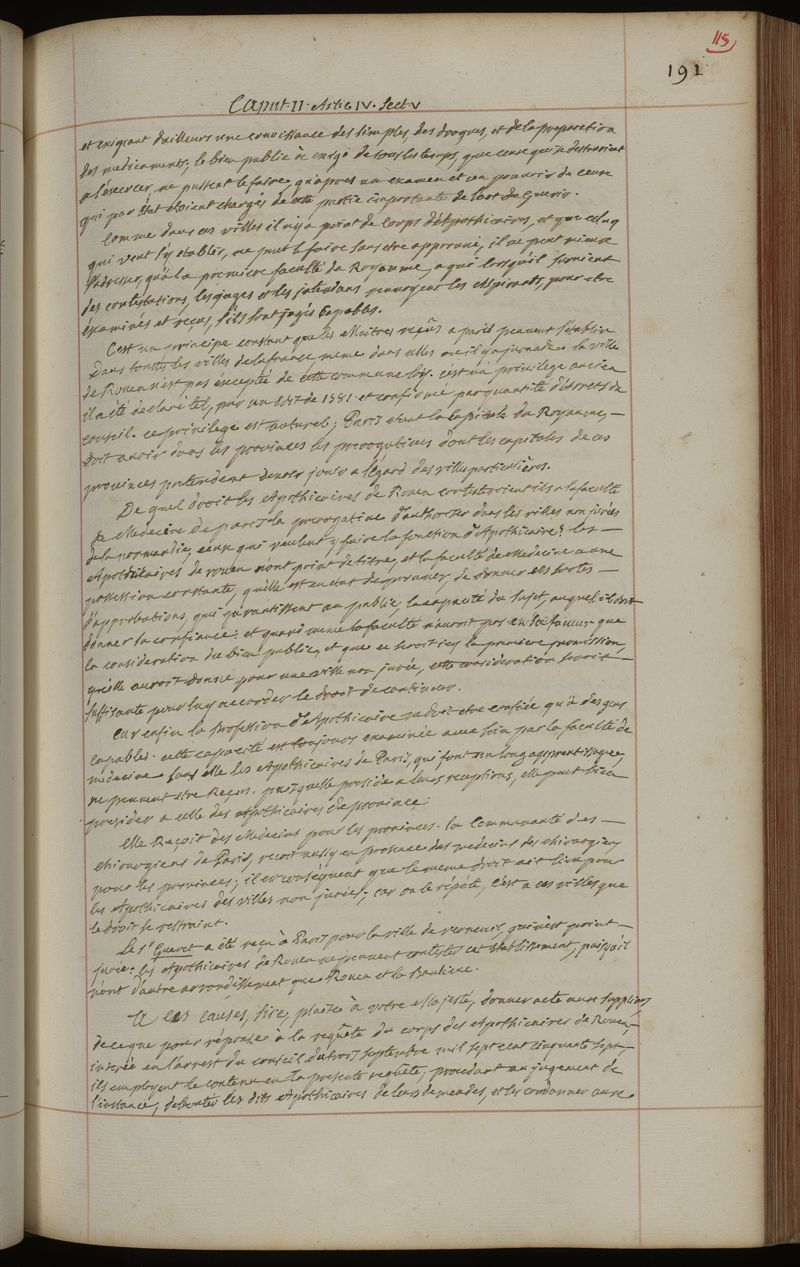 115
191
Caput II. Artic IV. Sect V
et exigeant d'ailleurs une connoissance des simples, des drogues, et de la preparation
des medicaments, le bien public a exigé de tous les temps, que ceux qui se destineroient
a l'exercer, ne pussent le faire, qu'apres un examen et un pouvoir de ceux
qui par état étoient chargés de cette partie importante de l'art de guerir.
Comme dans ces villes il n'y a point de Corps d'Apothicaires, et que celuy
qui veut s'y etablir, ne peut le faire sans etre approuvé, il ne peut mieux
s'adresser, qu'à la premiere faculté du Royaume, a qui lorsqu'il survient
des contestations, les juges et les intendans renvoyent les Aspirants, pour etre
éxaminés et reçus, s'ils sont jugés Capables.
C'est un principe constant que les Maitres reçus a paris peuvent s'établir
dans toutes les villes de la france meme dans celles ou il y a jurande. la ville
de Rouen n'est pas exceptée de cette commune loy. c'est un privilege ancien
il a été declaré tel, par un Edit de 1581. et confirmé par quantité d'Arrets du
conseil. ce privilege est naturel; Paris etant la Capitale du Royaume,
doit avoir dans les provinces les prerogatives dont les capitales de ces
provinces pretendent devoir jouir a l'égard des villes particulières.
De quel droit les Apothicaires de Rouen contesteroient ils a la faculté
de Medecine de paris la prerogative d'authoriser dans les villes non jurées
de la normandie, ceux qui veulent y faire la fonction d'Apothicaire? les
Apothicaires de rouen n'ont point de titre, et la faculté de Medecine a une
possession constante, qu'elle est en etat de prouver, de donner des sortes
d'approbations, qui garantissent au public, la capacité du sujet, auquel il doit
donner sa confiance: et quand meme la faculté n'auroit pas en sa faveur que
la consideration du bien public, et que ce seroit icy la premiere permission
qu'elle auroit donné pour une ville non jurée, cette consideration seroit
suffisante pour luy accorder le droit de continuer.
Car enfin la Profession d'Apothicaire ne doit etre confiée qu'à des gens
capables. cette capacité est toujours examinée avec soin par la faculté de
medecine sans elle les Apothicaires de Paris, qui font un long apprentissage,
ne peuvent etre Reçus. puisqu'elle preside a leurs receptions, elle peut bien
presider a celle des Apothicaires de province.
Elle Reçoit des Medecins pour les provinces. la Communauté des
chirurgiens de Paris, reçoit aussy en presence des medecins des chirurgiens
pour les provinces; il est conséquent que le meme droit ait lieu pour
les Apothicaires des villes non jurées; car on le répéte, c'est a ces villes que
le droit se restraint.
Le Sr Gueret a été reçu à Paris pour la ville de verneuil, qui n'est point
jurée. les Apothicaires de Rouen ne peuvent contester cet etablissement, puisqu'il
n'ont d'autre arrondissement que Rouen et la Banlieue.
A ces causes, sire, plaise à votre Majesté, donner acte aux supplians
de ce que pour réponse à la requête du corps des Apothicaires de Rouen,
inserée en l'arrest du conseil du trois septembre mil sept cent cinquante sept,
ils employent le contenu en la presente requête, procedant au jugement de
l'instance, debouter les dits Apothicaires de leurs demandes, et les condamner aux